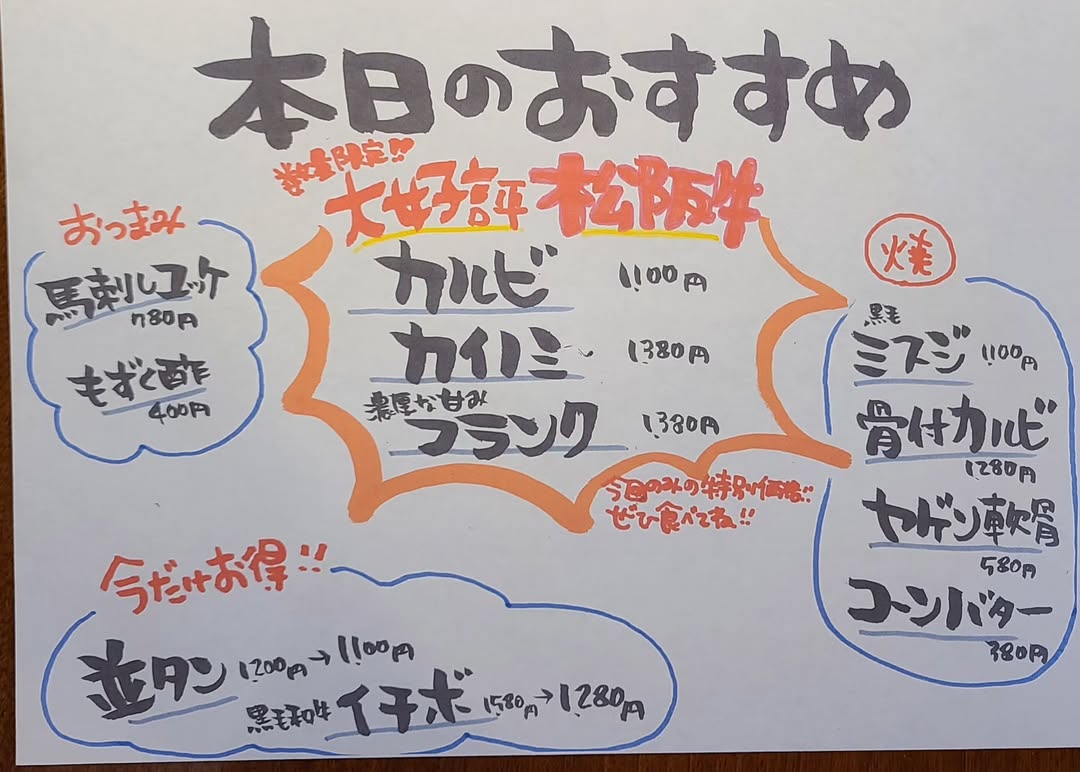 本日のおすすめ
数量限定!!
大好評 松阪牛
カルビ 1,100円
カイノミ 1,380円
濃厚な甘み
フランク 1,380円
今回のみの特別価格!!
ぜひ食べてね!!
おつまみ
馬刺しユッケ
780円
もずく酢
400円
焼
黒毛
ミスジ 1,100円
骨付カルビ
1,280円
ヤゲン軟骨
580円
コーンバター
380円
今だけお得!!
並タン 1,200円→1,100円
黒毛和牛 イチボ 1,580円→1,280円